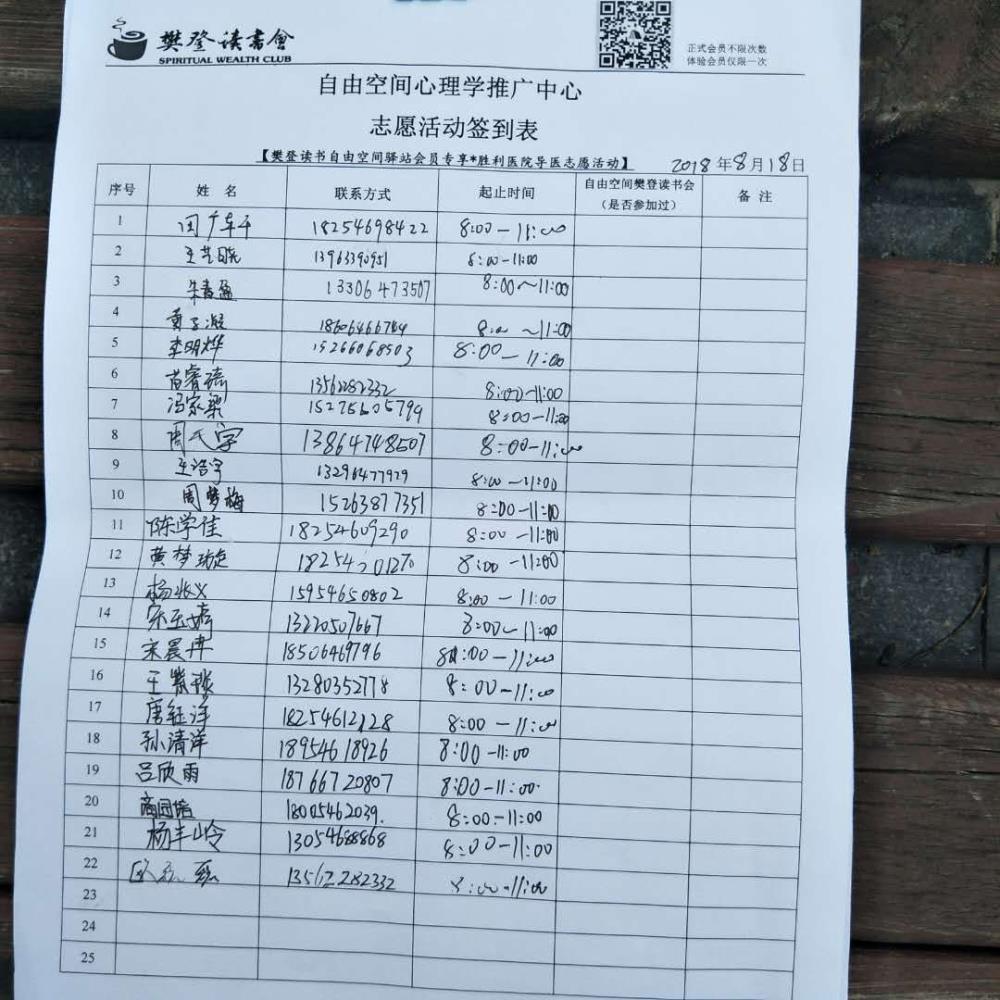 樊登读书會
SPIRITUAL WEALTH CLUB
正式会员不限次数
体验会员仅限一次
自由空间心理学推广中心
志愿活动签到表
【樊登读书自由空间驿站会员专享*胜利医院导医志愿活动】 2018年8月18日
序号 姓 名 联系方式 起止时间 自由空间樊登读书会（是否参加过） 备 注
1 18254698422 8:00-11:00
2 王艺晓 13963390951 8:00-11:00
3 13306473507 8:00~11:00
4 8:00~11:00
5 李明烨 15266068503 8:00-11:00
6 苗睿琦 13562282332 8:00-11:00
7 冯家梁 8:00-11:00
8 13864748507 8:00-11:00
9 王浩宇 8:00-11:00
10 周梦梅 15263877351 8:00-11:00
11 陈学佳 18254609290 8:00-11:00
12 黄梦璇 8:00-11:00
13 杨兆义 15954650802 8:00-11:00
14 13220507667 8:00-11:00
15 18506469796 8:00-11:00
16 13280352778 8:00-11:00
17 唐钰洋 18254612128 8:00-11:00
18 孙清洋 18954618926 8:00-11:00
19 吕欣雨 18766720807 8:00-11:00
20 18005462039. 8:00-11:00
21 杨丰岭 13054688868 8:00-11:00
22 13562282332 8:00-11:00
23
24
25